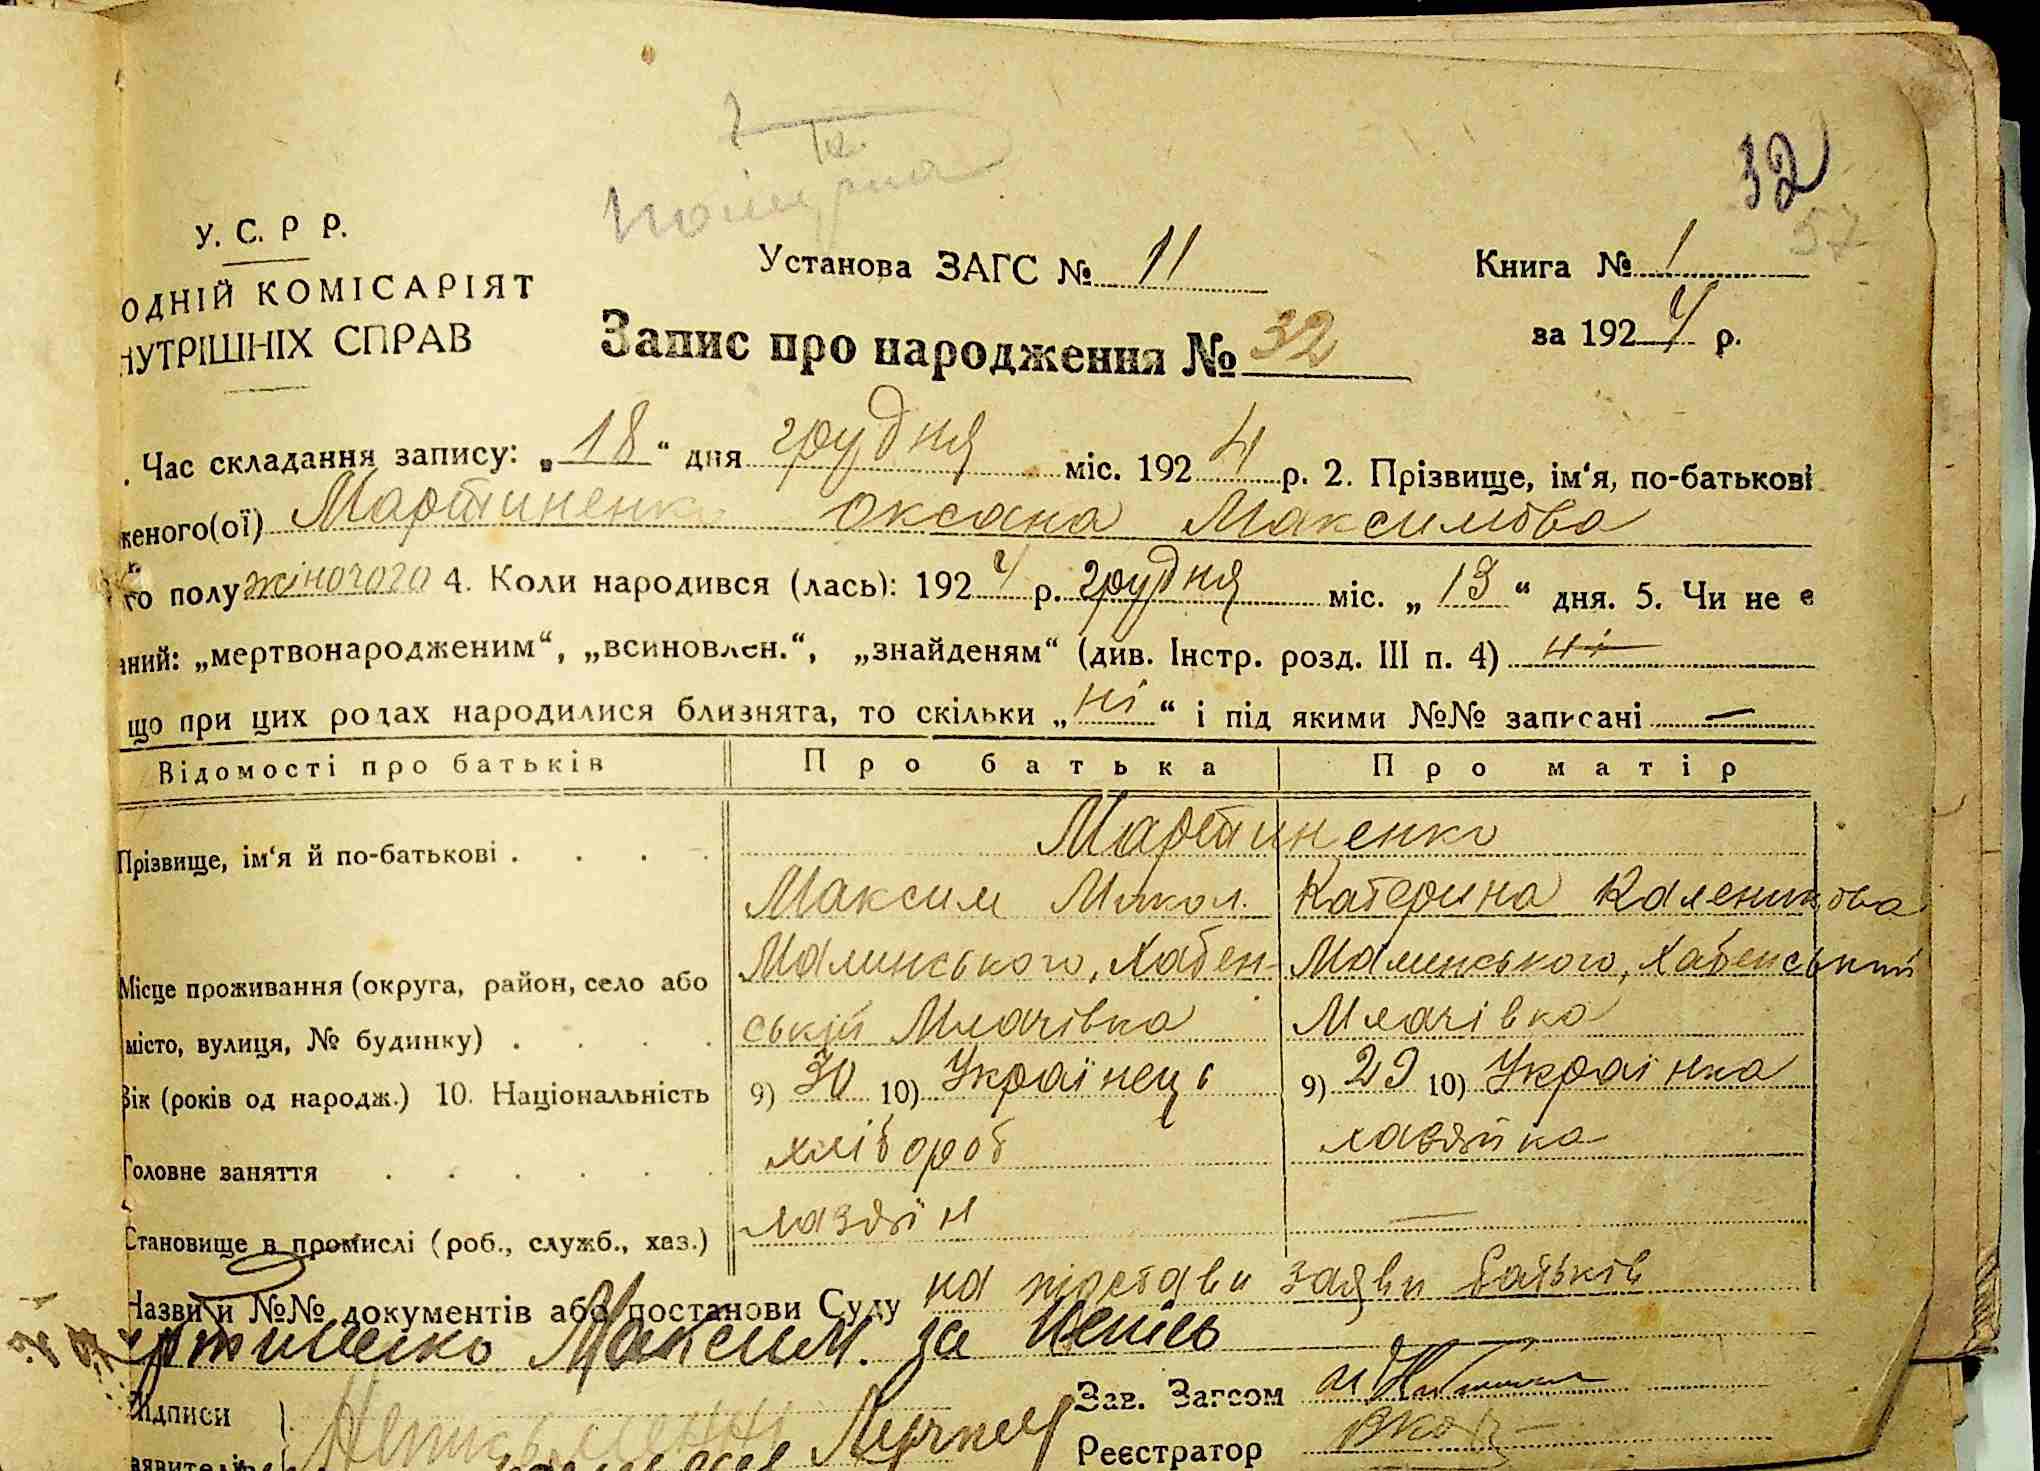 32
57
У. С. Р Р.
Установа ЗАГС № 11
Книга № 1
ОДНІЙ КОМІСАРІЯТ
НУТРІШНІХ СПРАВ
Запис про народження № 32
за 1924 р.
Час складання запису: „18“ дня грудня міс. 1924 р. 2. Прізвище, ім‘я, по-батькові
женого(ої) Мартиненко Оксана Максимова
го полу жіночого 4. Коли народився (лась): 1924 р. грудня міс. „13“ дня. 5. Чи не є
аний: „мертвонародженим“, „всиновлен.“, „знайденям“ (див. Інстр. розд. III п. 4) ні
що при цих родах народилися близнята, то скільки „ні“ і під якими №№ записані —
Відомості про батьків Про батька Про матір
Мартиненко
Прізвище, ім‘я й по-батькові . . . .
Максим Микол. Катерина Каленикова
Малинського, Хабен- Малинського, Хабенський
Місце проживання (округа, район, село або
ській Млачівка Млачівка
місто, вулиця, № будинку) . . . .
Вік (років од народж.) 10. Національність 9) 30 10) Українець 9) 29 10) Українка
хлібороб хазяйка
Головне заняття . . . . . .
хазяїн —
Становище в промислі (роб., служб., хаз.)
Назви й №№ документів або постанови Суду на підстави заяви батьків
ртиненко Максим. за
Підписи
Зав. Загсом
Неписьменні
Реєстратор
аявителів